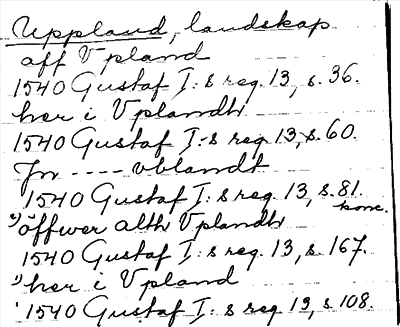 Uppland, landskap
aff Vpland
1540 Gustaf I:s reg. 13, s. 36.
her i Vplandh
1540 Gustaf I:s reg 13, s. 60.
Jn ---- vblandt
1540 Gustaf I:s reg. 13, s. 81.
konc.
öffwer alth Vplandh
1540 Gustaf I:s reg. 13, s. 167.
her i Vpland
1540 Gustaf I:s reg 13, s. 108.